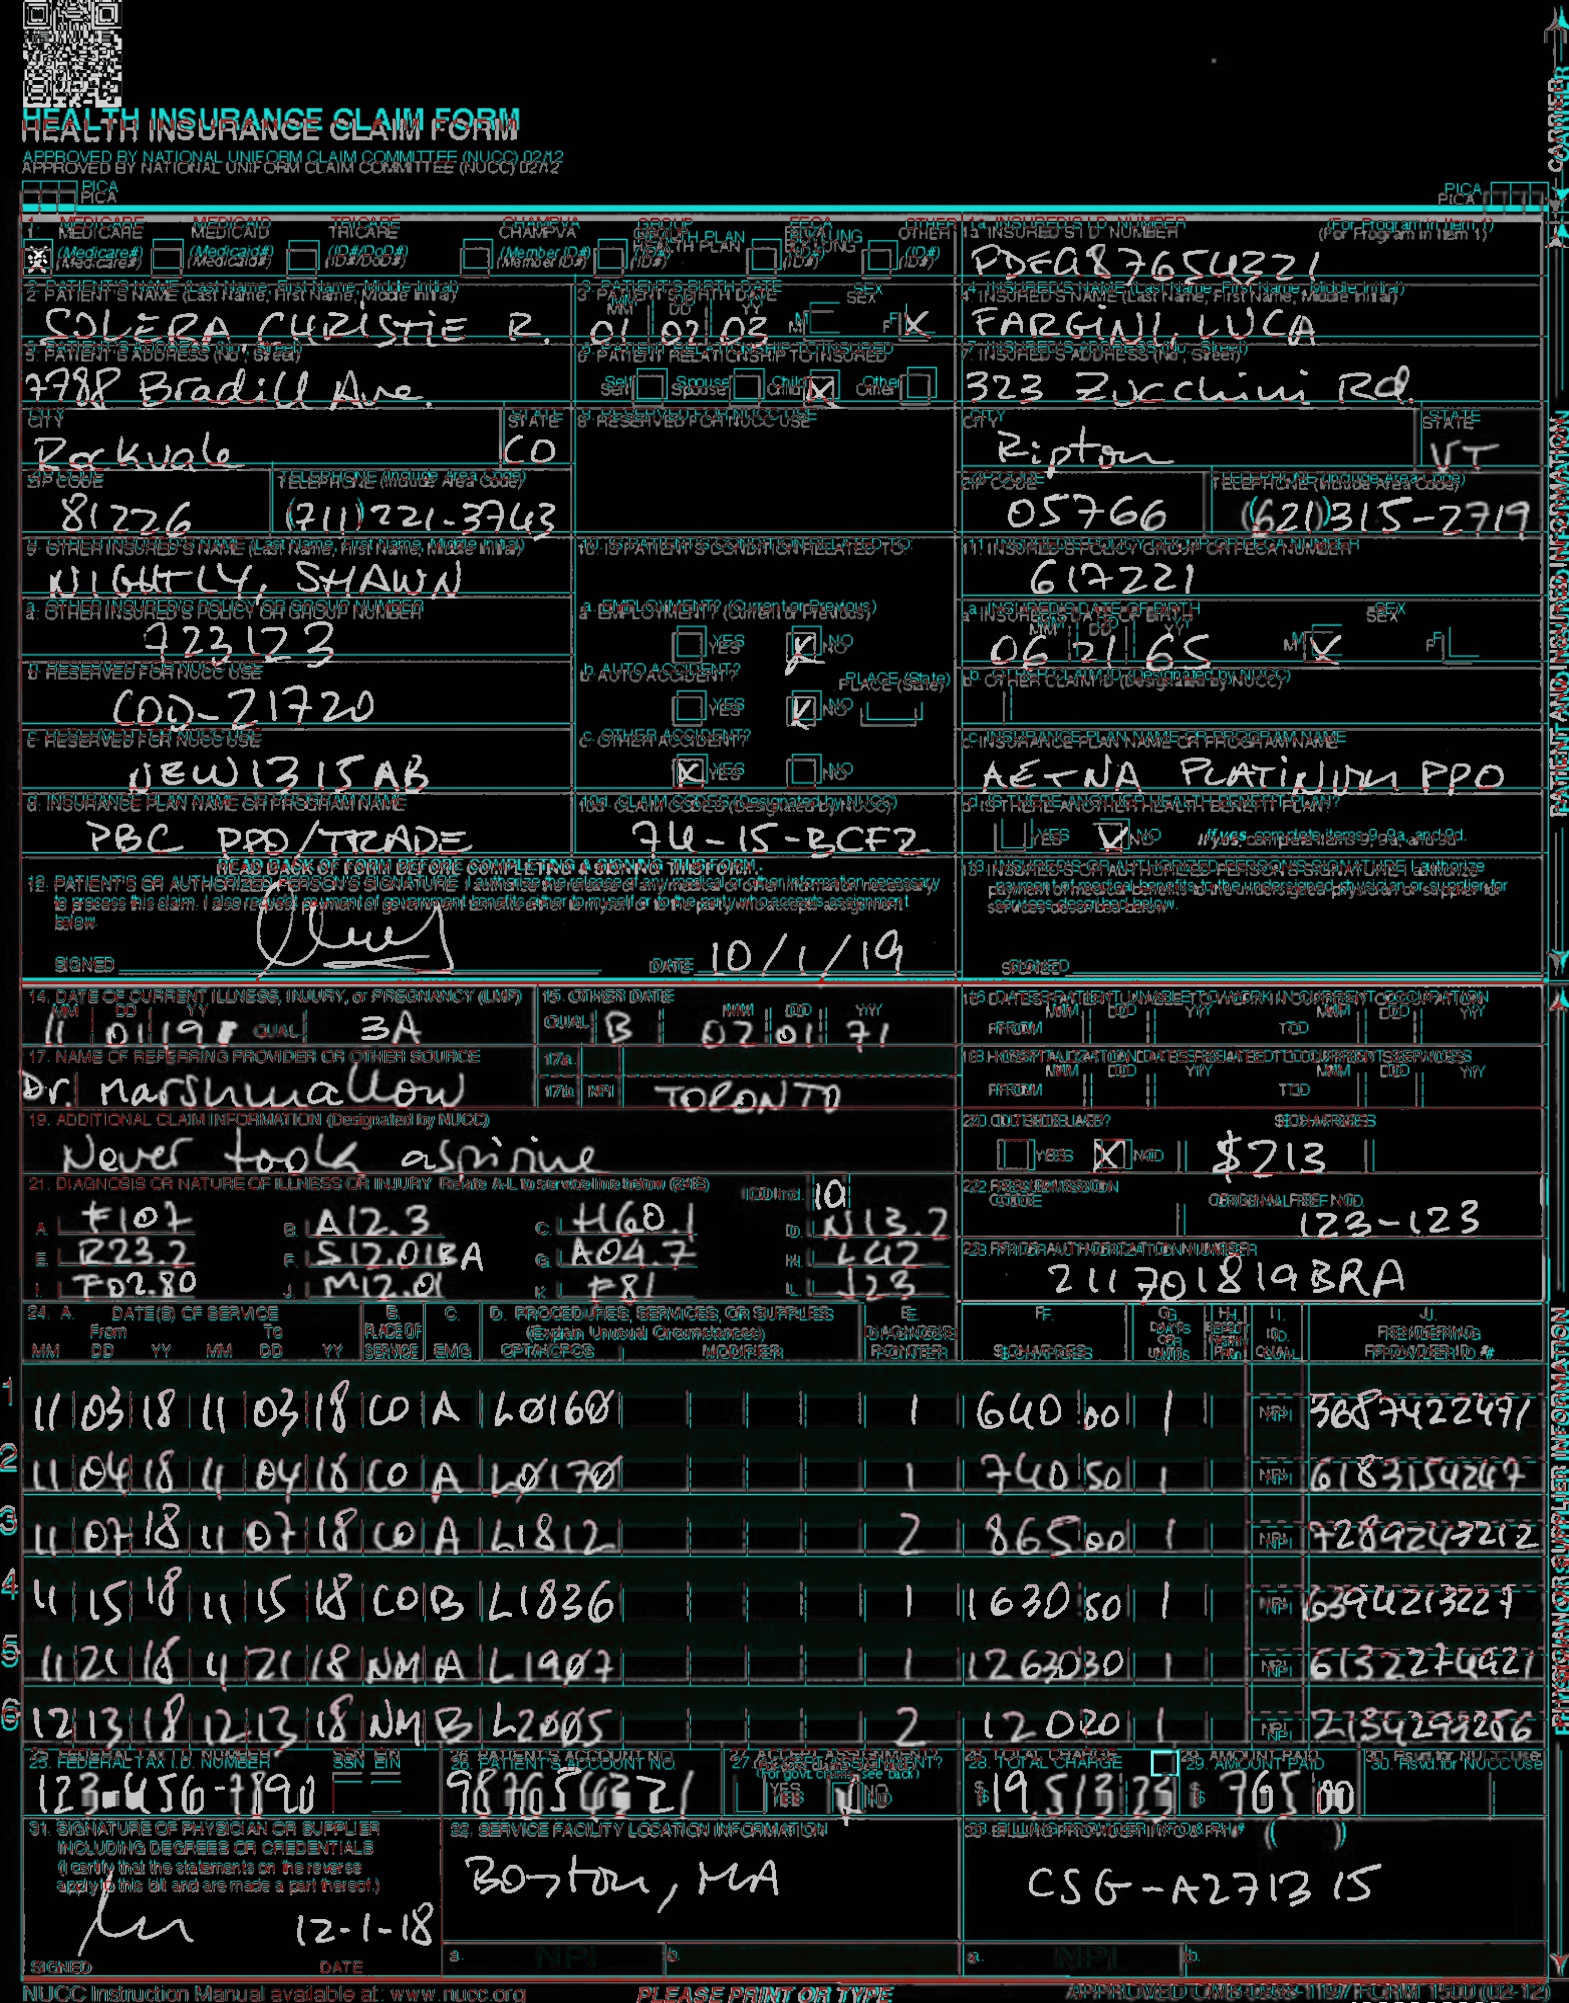 HEALTH INSURANCE CLAIM FORM
APPROVED BY NATIONAL UNIFORM CLAIM COMMITTEE (NUCC) 02/12
PICA PICA
CARRIER
1. MEDICARE MEDICAID TRICARE CHAMPVA GROUP HEALTH PLAN FECA BLK LUNG OTHER
(Medicare#) (Medicaid#) (ID#/DoD#) (Member ID#) (ID#) (ID#) (ID#)
1a. INSURED'S I.D. NUMBER (For Program in Item 1)
PDFA87654221
2. PATIENT'S NAME (Last Name, First Name, Middle Initial)
SOLERA, CHRISTIE R.
3. PATIENT'S BIRTH DATE SEX
MM DD YY
01 02 03 M F X
4. INSURED'S NAME (Last Name, First Name, Middle Initial)
FARGINI, LUCA
5. PATIENT'S ADDRESS (No., Street)
7788 Bradill Ave.
6. PATIENT RELATIONSHIP TO INSURED
Self Spouse Child X Other
7. INSURED'S ADDRESS (No., Street)
323 Zucchini Rd.
CITY STATE
Rockvale CO
8. RESERVED FOR NUCC USE
CITY STATE
Ripton VT
ZIP CODE TELEPHONE (Include Area Code)
81226 (711) 221-3743
ZIP CODE TELEPHONE (Include Area Code)
05766 (621) 315-2719
9. OTHER INSURED'S NAME (Last Name, First Name, Middle Initial)
NIGHTLY, SHAWN
10. IS PATIENT'S CONDITION RELATED TO:
11. INSURED'S POLICY GROUP OR FECA NUMBER
617221
a. OTHER INSURED'S POLICY OR GROUP NUMBER
723123
a. EMPLOYMENT? (Current or Previous)
YES X NO
a. INSURED'S DATE OF BIRTH SEX
MM DD YY
06 21 65 M X F
b. RESERVED FOR NUCC USE
COD-21720
b. AUTO ACCIDENT? PLACE (State)
YES X NO
b. OTHER CLAIM ID (Designated by NUCC)
c. RESERVED FOR NUCC USE
NEW1315AB
c. OTHER ACCIDENT?
X YES NO
c. INSURANCE PLAN NAME OR PROGRAM NAME
AETNA PLATINUM PPO
d. INSURANCE PLAN NAME OR PROGRAM NAME
PBC PPO/TRADE
10d. CLAIM CODES (Designated by NUCC)
74-15-BCF2
d. IS THERE ANOTHER HEALTH BENEFIT PLAN?
YES X NO If yes, complete items 9, 9a, and 9d.
READ BACK OF FORM BEFORE COMPLETING & SIGNING THIS FORM.
12. PATIENT'S OR AUTHORIZED PERSON'S SIGNATURE I authorize the release of any medical or other information necessary
to process this claim. I also request payment of government benefits either to myself or to the party who accepts assignment
below.
SIGNED DATE 10/1/19
13. INSURED'S OR AUTHORIZED PERSON'S SIGNATURE I authorize
payment of medical benefits to the undersigned physician or supplier for
services described below.
SIGNED
PATIENT AND INSURED INFORMATION
14. DATE OF CURRENT ILLNESS, INJURY, or PREGNANCY (LMP)
MM DD YY
11 01 QUAL. 3A
15. OTHER DATE
QUAL. B MM DD YY
02 01 71
16. DATES PATIENT UNABLE TO WORK IN CURRENT OCCUPATION
MM DD YY MM DD YY
FROM TO
17. NAME OF REFERRING PROVIDER OR OTHER SOURCE
Dr. Marshmallow
17a.
17b. NPI TORONTO
18. HOSPITALIZATION DATES RELATED TO CURRENT SERVICES
MM DD YY MM DD YY
FROM TO
19. ADDITIONAL CLAIM INFORMATION (Designated by NUCC)
Never took aspirine
20. OUTSIDE LAB? $ CHARGES
YES X NO $213
21. DIAGNOSIS OR NATURE OF ILLNESS OR INJURY Relate A-L to service line below (24E) ICD Ind. 10
A. F107 B. A12.3 C. H60.1 D. N13.2
E. R23.2 F. S12.01BA G. A04.7 H. L42
I. F02.80 J. M12.01 K. F81 L. J23
22. RESUBMISSION CODE ORIGINAL REF. NO.
123-123
23. PRIOR AUTHORIZATION NUMBER
211701819BRA
24. A. DATE(S) OF SERVICE B. C. D. PROCEDURES, SERVICES, OR SUPPLIES E. F. G. H. I. J.
From To PLACE OF (Explain Unusual Circumstances) DIAGNOSIS DAYS OR ID. RENDERING
MM DD YY MM DD YY SERVICE EMG CPT/HCPCS MODIFIER POINTER $ CHARGES UNITS QUAL. PROVIDER ID. #
1 11 03 18 11 03 18 CO A L0160 1 640 00 1 NPI 3687422471
2 11 04 18 11 04 18 CO A L0170 1 740 50 1 NPI 6183154247
3 11 07 18 11 07 18 CO A L1812 2 865 00 1 NPI 7289243212
4 11 15 18 11 15 18 CO B L1836 1 1630 50 1 NPI 6394213227
5 11 21 18 11 21 18 NM A L1907 1 1263030 1 NPI 6132274921
6 12 13 18 12 13 18 NM B L2005 2 12020 1 NPI 2134293206
25. FEDERAL TAX I.D. NUMBER SSN EIN
123-456-7890
26. PATIENT'S ACCOUNT NO.
987654321
27. ACCEPT ASSIGNMENT?
(For govt. claims, see back)
YES X NO
28. TOTAL CHARGE
$ 19.513 23
29. AMOUNT PAID
$ 765 00
30. Rsvd. for NUCC Use
31. SIGNATURE OF PHYSICIAN OR SUPPLIER
INCLUDING DEGREES OR CREDENTIALS
(I certify that the statements on the reverse
apply to this bill and are made a part thereof.)
12-1-18
SIGNED DATE
32. SERVICE FACILITY LOCATION INFORMATION
Boston, MA
a. NPI b.
33. BILLING PROVIDER INFO & PH # ( )
CSG-A271315
a. NPI b.
PHYSICIAN OR SUPPLIER INFORMATION
NUCC Instruction Manual available at: www.nucc.org
PLEASE PRINT OR TYPE
APPROVED OMB-0938-1197 FORM 1500 (02-12)